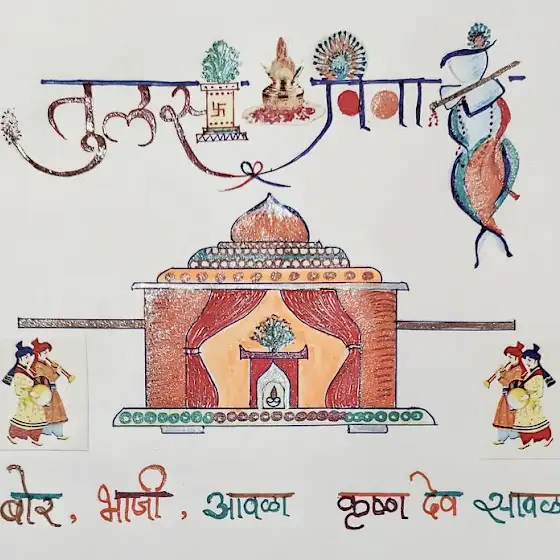 तुलसी विवाह
बोर, भाजी, आवळा कृष्ण देव सावळ